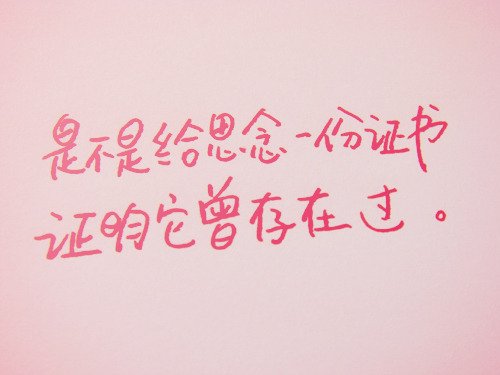 是不是给思念一份证书
证明它曾存在过。